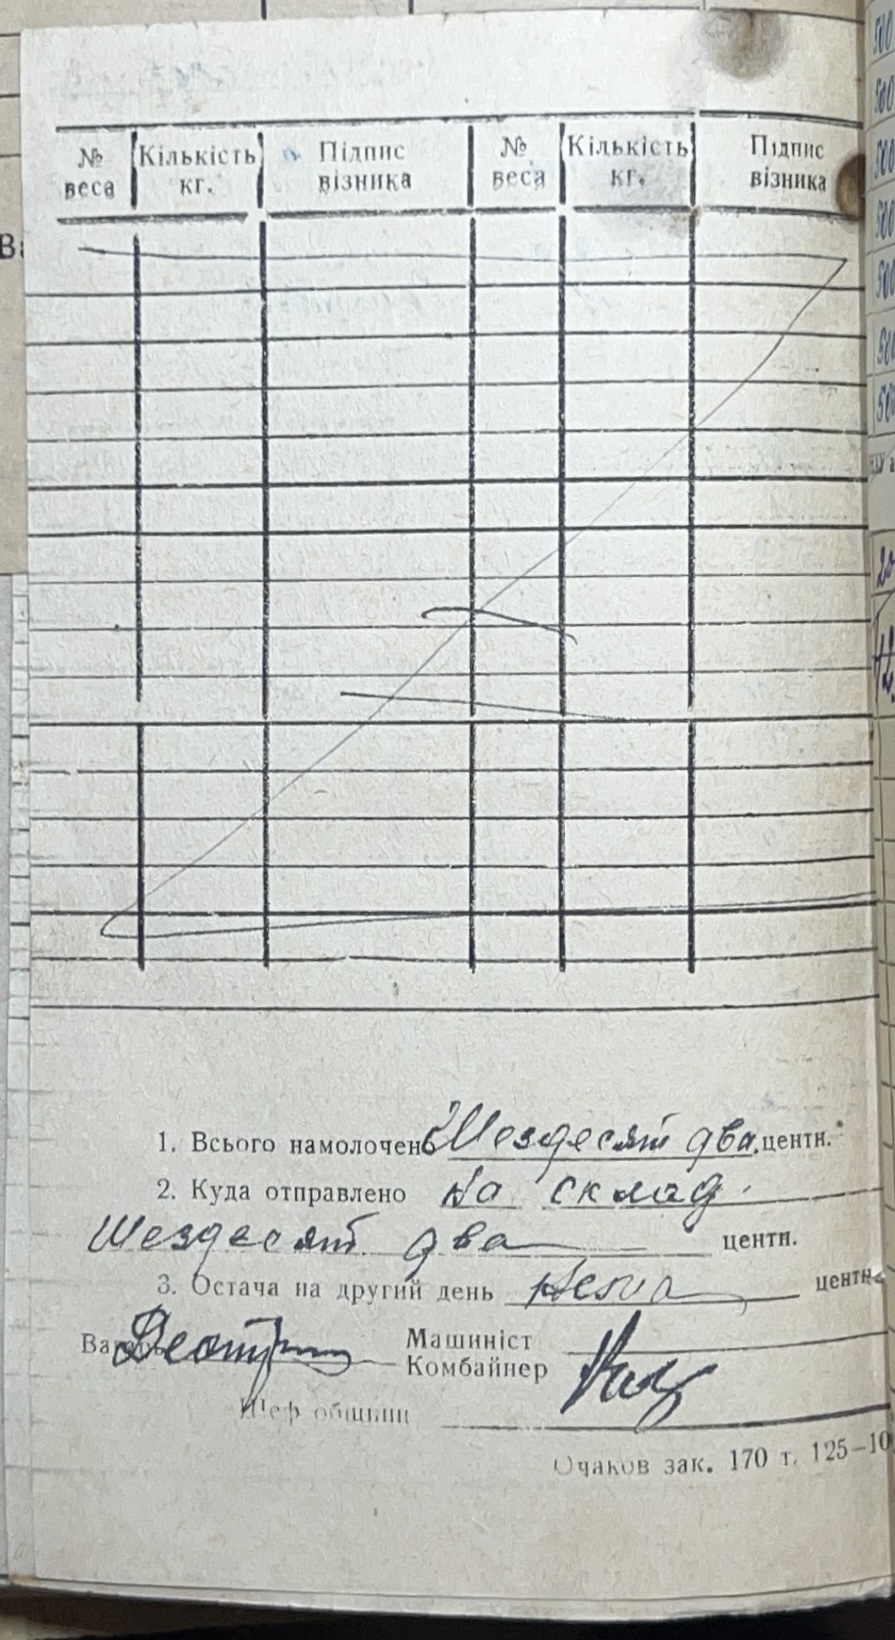 № веса Кількість кг. Підпис візника № веса Кількість кг. Підпис візника
1. Всього намолочено Шездесят два центн.
2. Куда отправлено на склад.
Шездесят два центн.
3. Остача на другий день нема центн.
Машиніст
Комбайнер
Шеф общини
Очаков зак. 170 т. 125-10